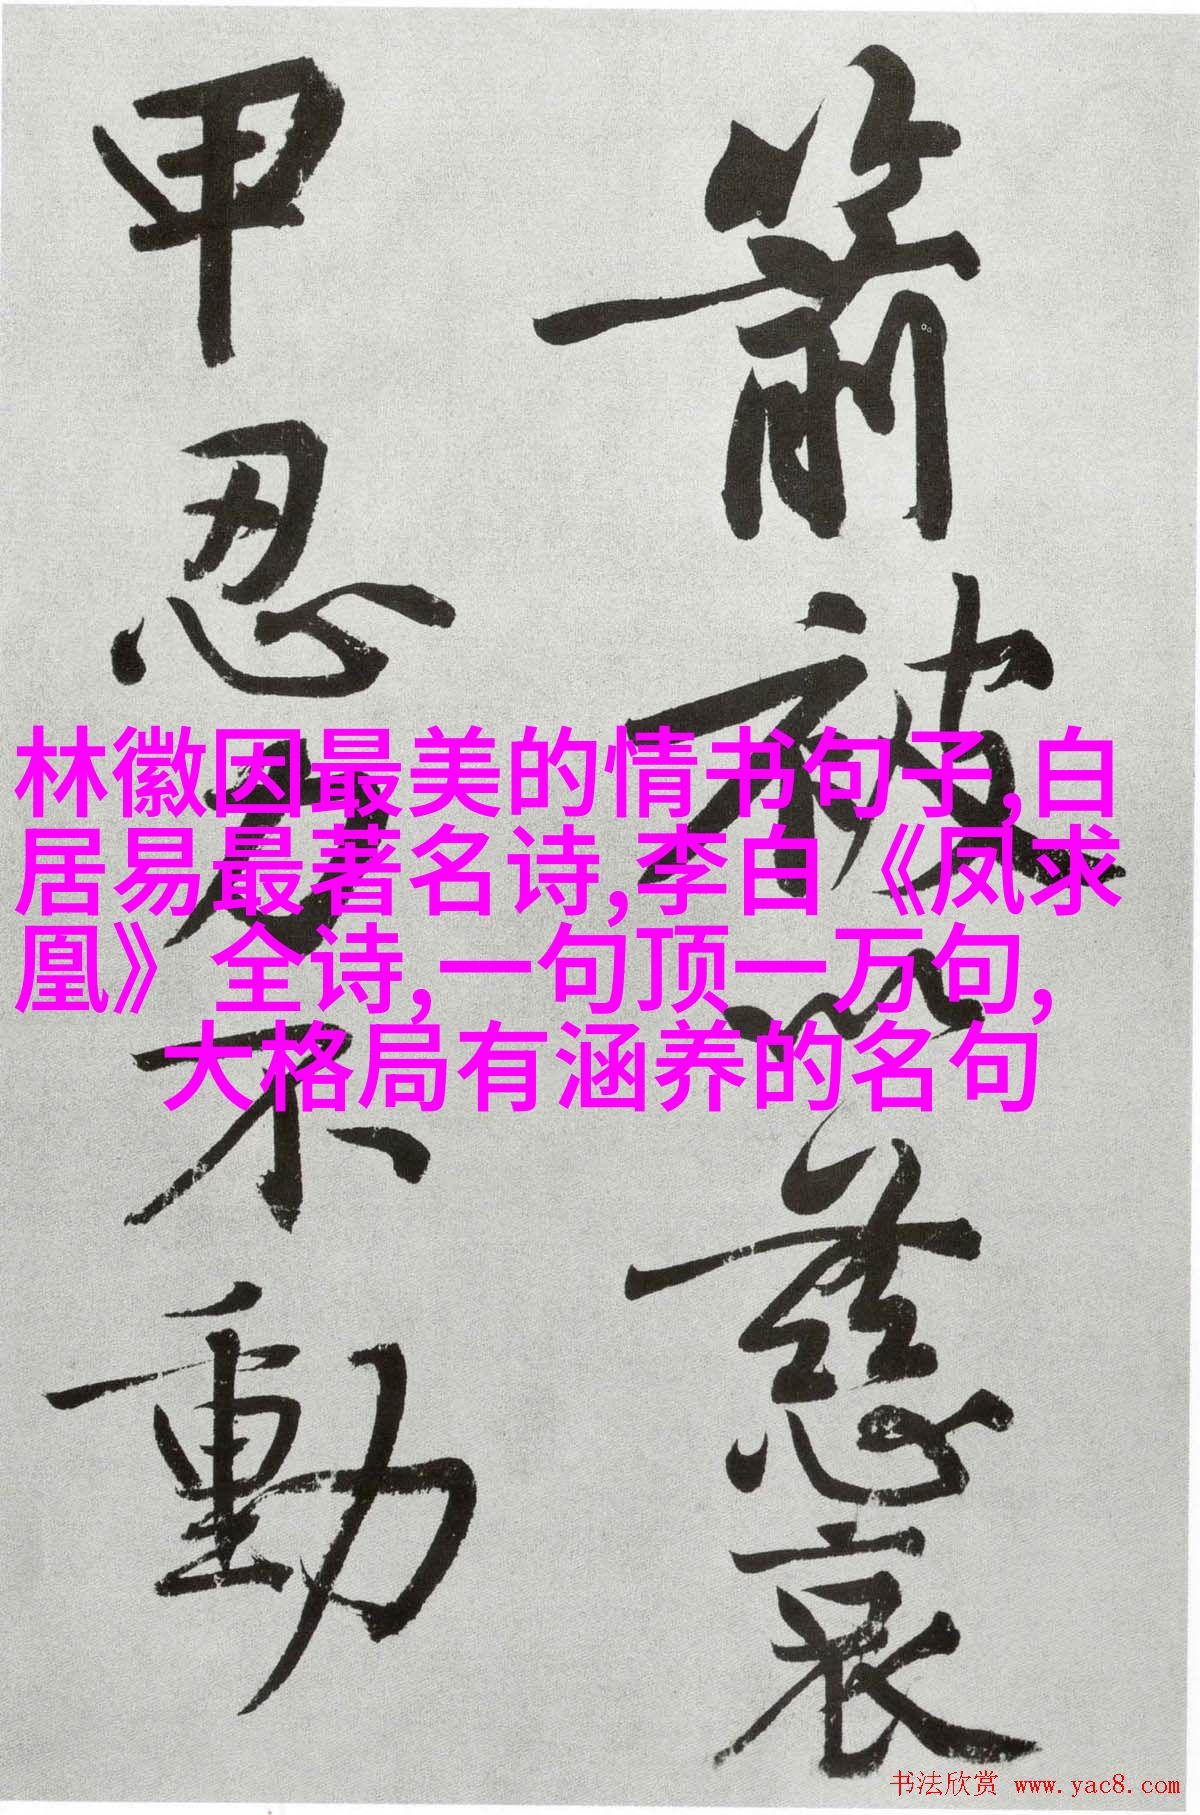 箭被以慈哀
甲忍不動
林徽因最美的情书句子,白
居易最著名诗,李白《凤求
凰》全诗,一句顶一万句,
大格局有涵养的名句
书法欣赏 www.yac8.com